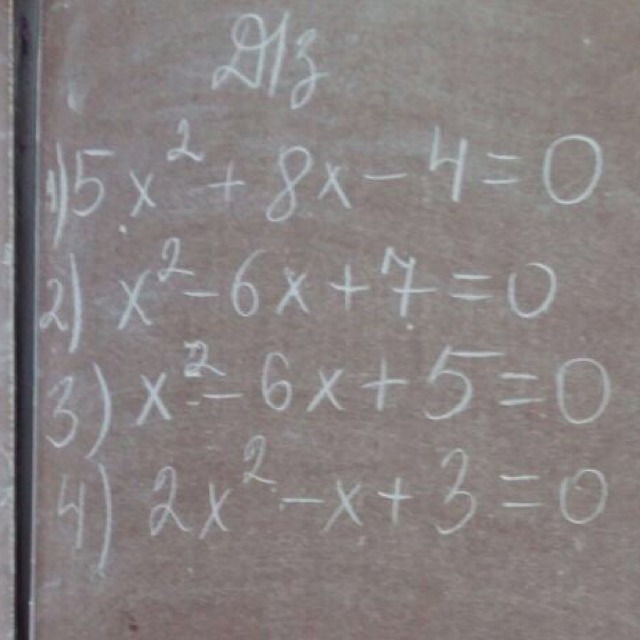 Д/з
1) 5x² + 8x - 4 = 0
2) x² - 6x + 7 = 0
3) x² - 6x + 5 = 0
4) 2x² - x + 3 = 0